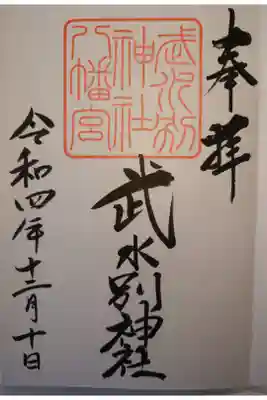 奉拝
武水別
神社
八幡宮
武水別神社
令和四年十二月十日